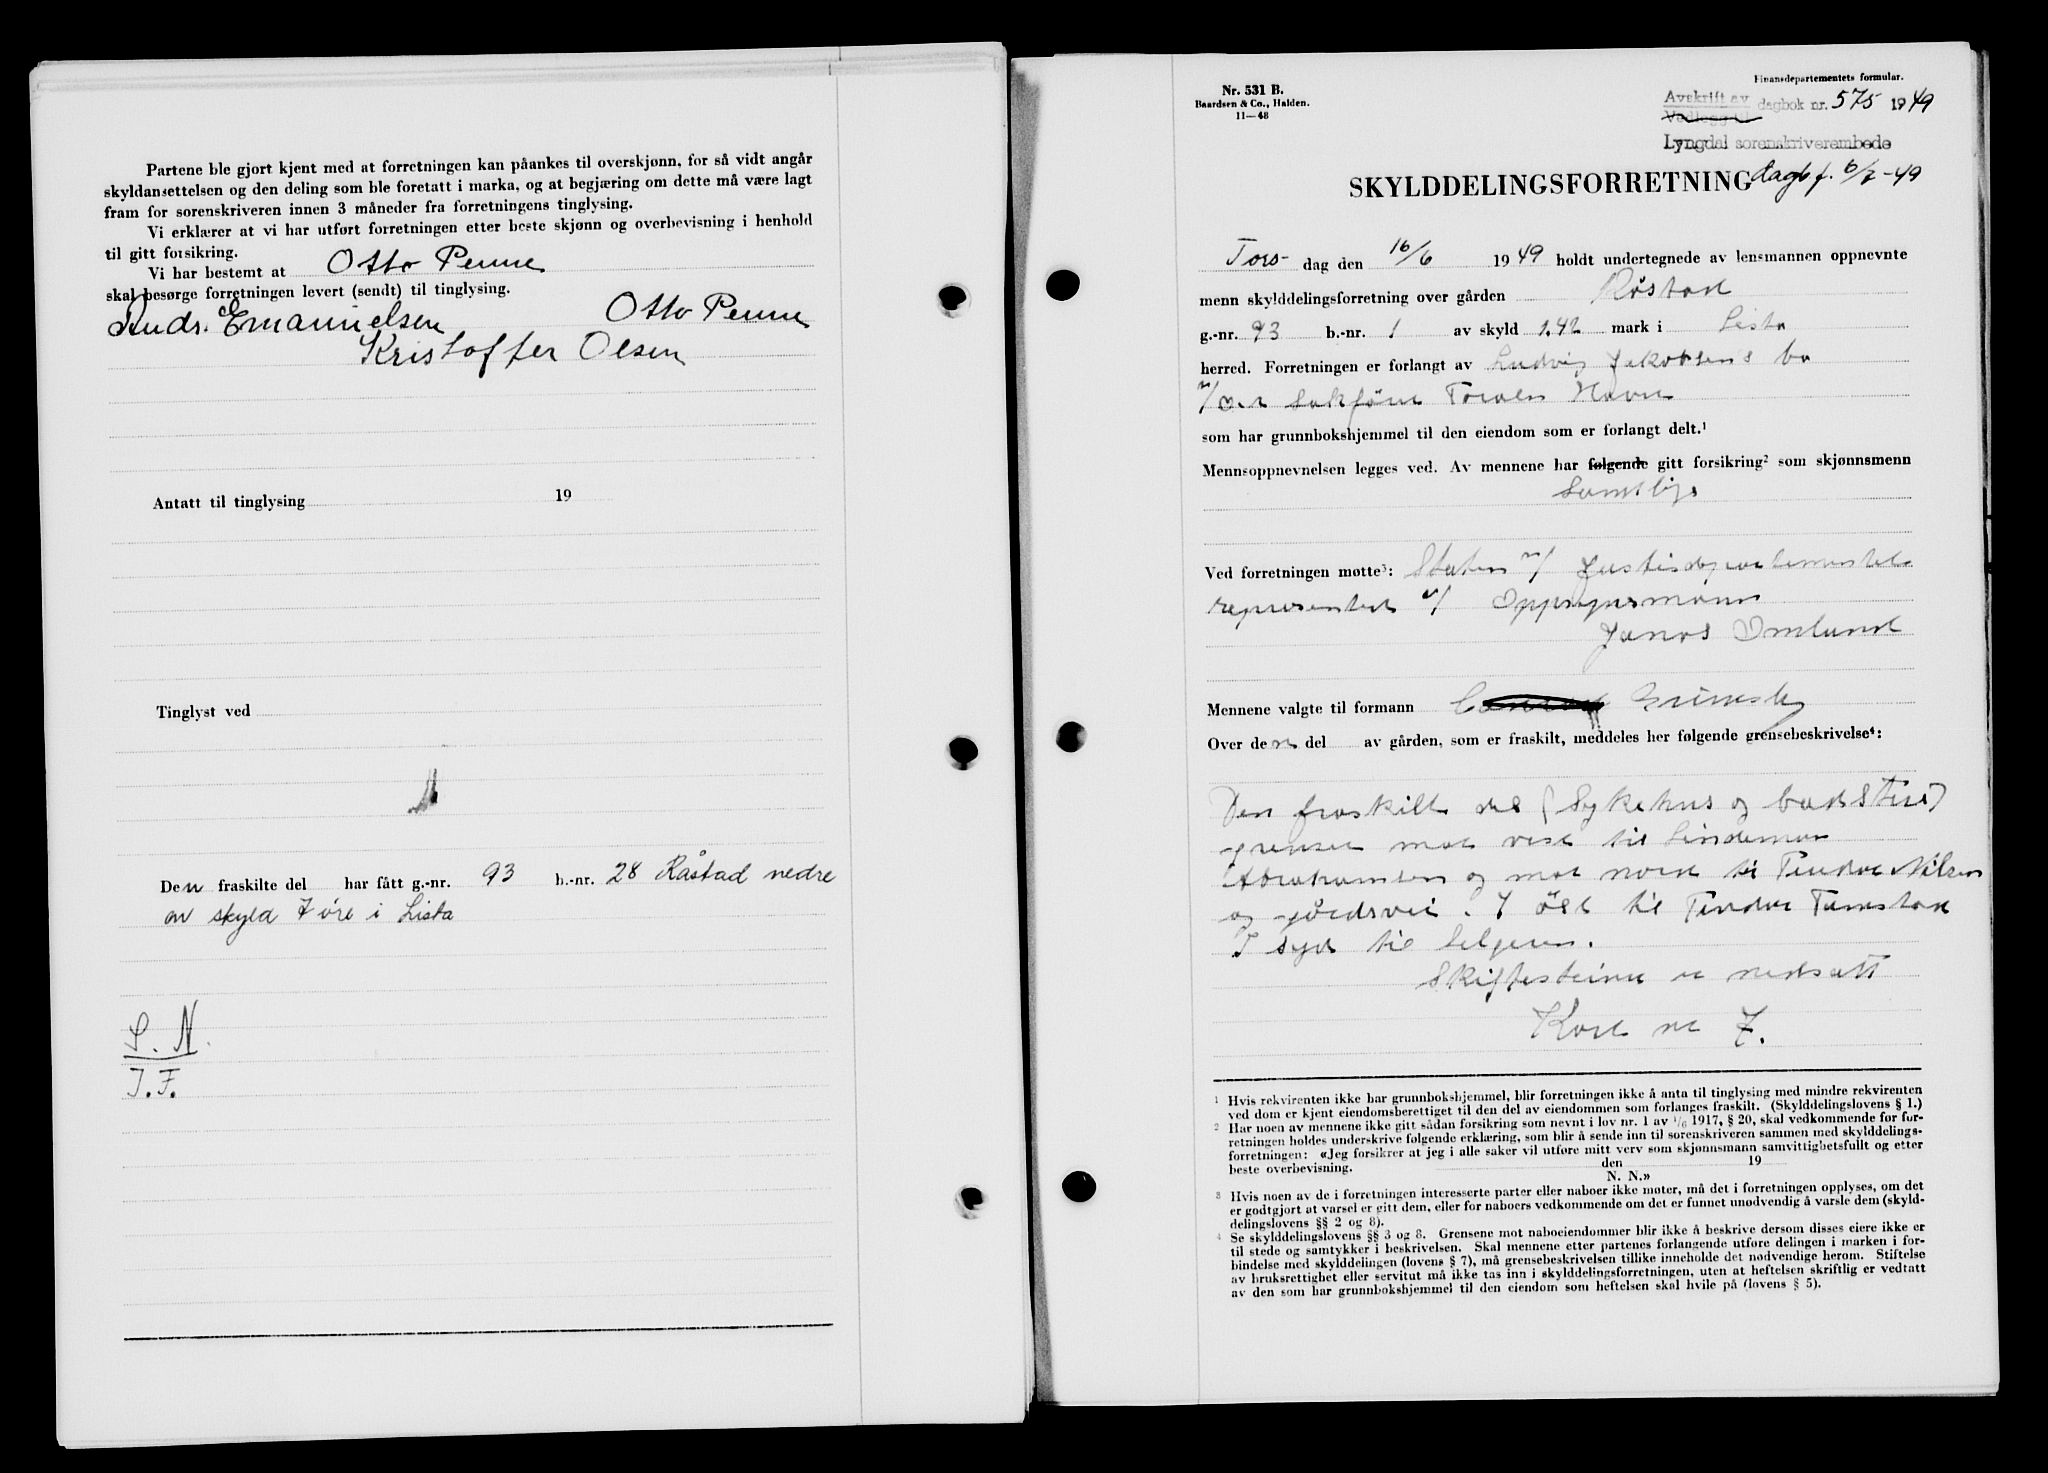 Partene ble gjort kjent med at forretningen kan påankes til overskjønn, for så vidt angår
skyldansettelsen og den deling som ble foretatt i marka, og at begjæring om dette må være lagt
fram for sorenskriveren innen 3 måneder fra forretningens tinglysing.
Vi erklærer at vi har utført forretningen etter beste skjønn og overbevisning i henhold
til gitt forsikring.
Vi har bestemt at Otto Penne
skal besørge forretningen levert (sendt) til tinglysing.
Andr. Emanuelsen Otto Penne
Kristoffer Olsen
Antatt til tinglysing 19
Tinglyst ved
Den fraskilte del har fått g.-nr. 93 b.-nr. 28 Råstad nedre
av skyld 7 øre i Lista
S. N.
J. F.
Nr. 531 B.
Baardsen & Co., Halden.
11—48
Finansdepartementets formular.
Avskrift av dagbok nr. 575 1949
Vedlegg til
Lyngdal sorenskriverembede
SKYLDDELINGSFORRETNING dagbf. 6/7-49
Tors- dag den 16/6 1949 holdt undertegnede av lensmannen oppnevnte
menn skylddelingsforretning over gården Råstad
g.-nr. 93 b.-nr. 1 av skyld 1.42 mark i Lista
herred. Forretningen er forlangt av Ludvig Jakobsens bo
v/ sakfører Havn
som har grunnbokshjemmel til den eiendom som er forlangt delt.¹
Mennsoppnevnelsen legges ved. Av mennene har følgende gitt forsikring² som skjønnsmenn
Samtlige
Ved forretningen møtte³: Staten v/ Justisdepartementet
representert v/ Oppsynsmann
Omland
Mennene valgte til formann Grimsby
Over den del av gården, som er fraskilt, meddeles her følgende grensebeskrivelse⁴:
Den fraskilt del (Sykehus og badstue)
grenser mot vest til Lindeman
Abrahamsen og mot nord til Teodor Nilsen
og gårdsvei. I øst til Teodor Tamstad
I syd til Selgeren.
Skiftesteine er nedsatt
Kart nr 7.
¹ Hvis rekvirenten ikke har grunnbokshjemmel, blir forretningen ikke å anta til tinglysing med mindre rekvirenten
ved dom er kjent eiendomsberettiget til den del av eiendommen som forlanges fraskilt. (Skylddelingslovens § 1.)
² Har noen av mennene ikke gitt sådan forsikring som nevnt i lov nr. 1 av 1/6 1917, § 20, skal vedkommende før for-
retningen holdes underskrive følgende erklæring, som blir å sende inn til sorenskriveren sammen med skylddelings-
forretningen: «Jeg forsikrer at jeg i alle saker vil utføre mitt verv som skjønnsmann samvittighetsfullt og etter
beste overbevisning. den 19
N. N.»
³ Hvis noen av de i forretningen interesserte parter eller naboer ikke møter, må det i forretningen opplyses, om det
er godtgjort at varsel er gitt dem, eller for naboers vedkommende om det er funnet unødvendig å varsle dem (skyld-
delingslovens §§ 2 og 8).
⁴ Se skylddelingslovens §§ 3 og 8. Grensene mot naboeiendommer blir ikke å beskrive dersom disses eiere ikke er
til stede og samtykker i beskrivelsen. Skal mennene etter partenes forlangende utføre delingen i marken i for-
bindelse med skylddelingen (lovens § 7), må grensebeskrivelsen tillike inneholde det nødvendige herom. Stiftelse
av bruksrettighet eller servitut må ikke tas inn i skylddelingsforretningen, uten at heftelsen skriftlig er vedtatt
av den som har grunnbokshjemmel til den eiendom som heftelsen skal hvile på (lovens § 5).